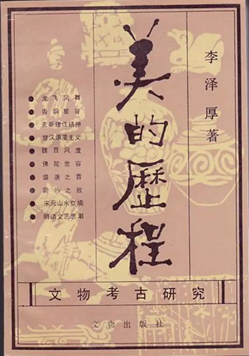 李泽厚著
美的歷程
龙飞凤舞
青铜饕餮
先秦理性精神
楚汉浪漫主义
魏晋风度
佛陀世容
盛唐之音
韵外之致
宋元山水意境
明清文艺思潮
文物考古研究
文物出版社